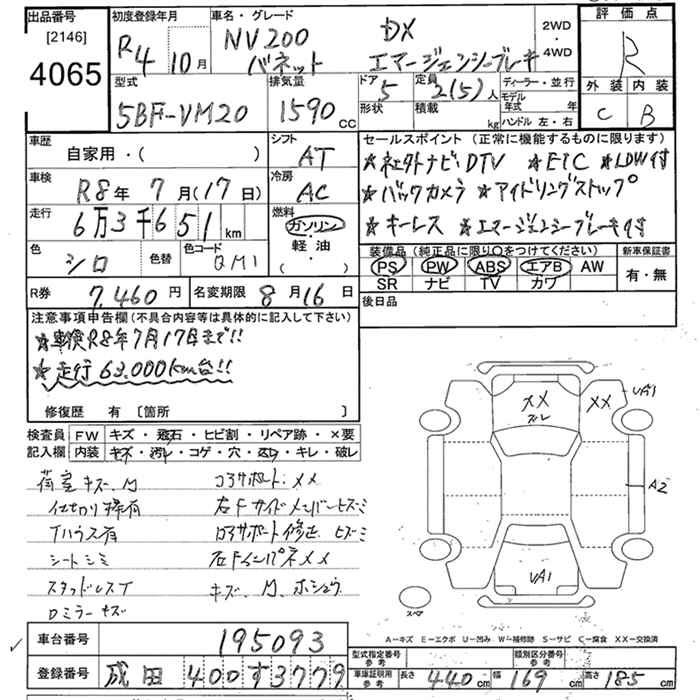 出品番号
[2146]
4065
初度登録年月
R4 10月
車名・グレード
NV200 バネット
DX
エマージェンシーブレーキ
2WD
・
4WD
評価点
R
外装 内装
C B
型式
5BF-VM20
排気量
1590 CC
ドア
5
形状
定員
2(5)人
積載
kg
ディーラー・並行
モデル年式 年
ハンドル 左・右
車歴
自家用・( )
シフト
AT
車検
R8年 7月(17日)
冷房
AC
走行
6万3千651 km
燃料
ガソリン
・
軽油
( ・ )
色
シロ
色替
色コード
QM1
R券
7,460円
名変期限 8月16日
セールスポイント (正常に機能するものに限ります)
★社外ナビ、DTV ★ETC ★LDW付
★バックカメラ ★アイドリングストップ
★キーレス ★エマージェンシーブレーキ付
装備品 (純正品に限り○をつけてください)
PS PW ABS エアB AW
SR ナビ TV カワ
新車保証書
有・無
後日品
注意事項申告欄 (不具合内容等は具体的に記入して下さい)
★車検R8年7月17日まで!!
★走行63,000km台!!
修復歴 有 [箇所 ]
検査員記入欄
FW キズ・飛石・ヒビ割・リペア跡・×要
内装 キズ・汚レ・コゲ・穴・スレ・キレ・破レ
荷室キズ、凹
コアサポート:××
右Fサイドメンバーヒズミ
コアサポート修正、ヒズミ
シートシミ
右Fインパネ××
スタッドレスT
キズ、凹、ホシュウ
ロミラーキズ
××
ズレ
××
UA1
A2
UA1
スペア
A-キズ E-エクボ U-凹み W-補修跡 S-サビ C-腐食 XX-交換済
車台番号
195093
登録番号
成田 400す3779
型式指定番号
参考
類別区分番号
参考
車庫証明用
参考
長さ 440cm 幅 169cm 高さ 185cm